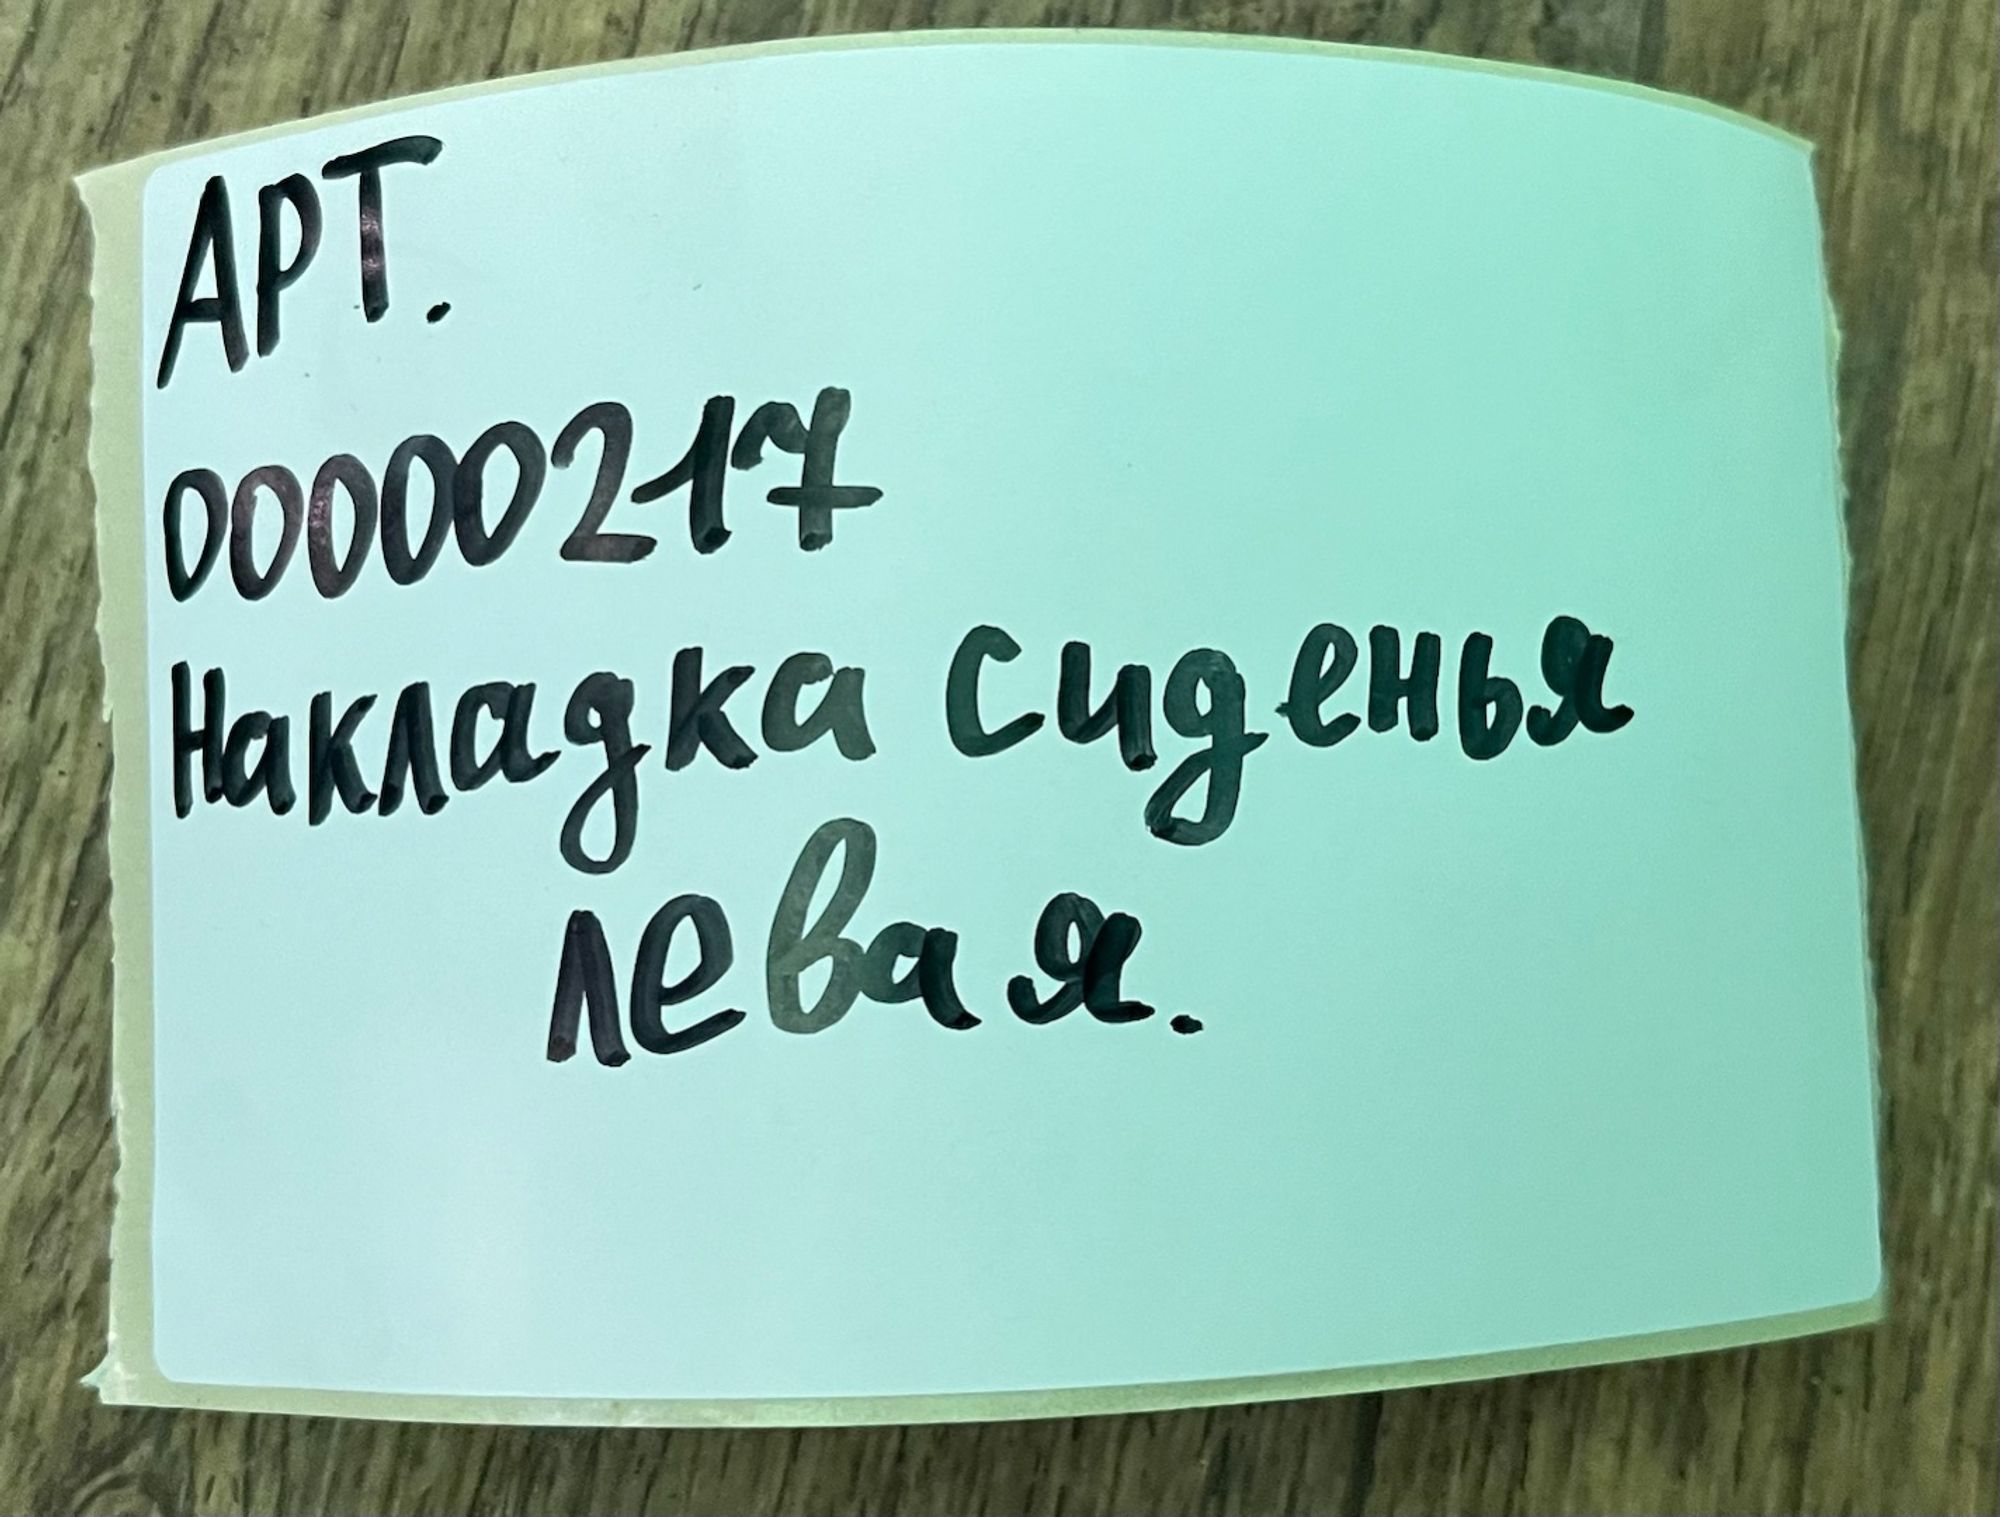 АРТ.
00000217
Накладка сиденья
левая.